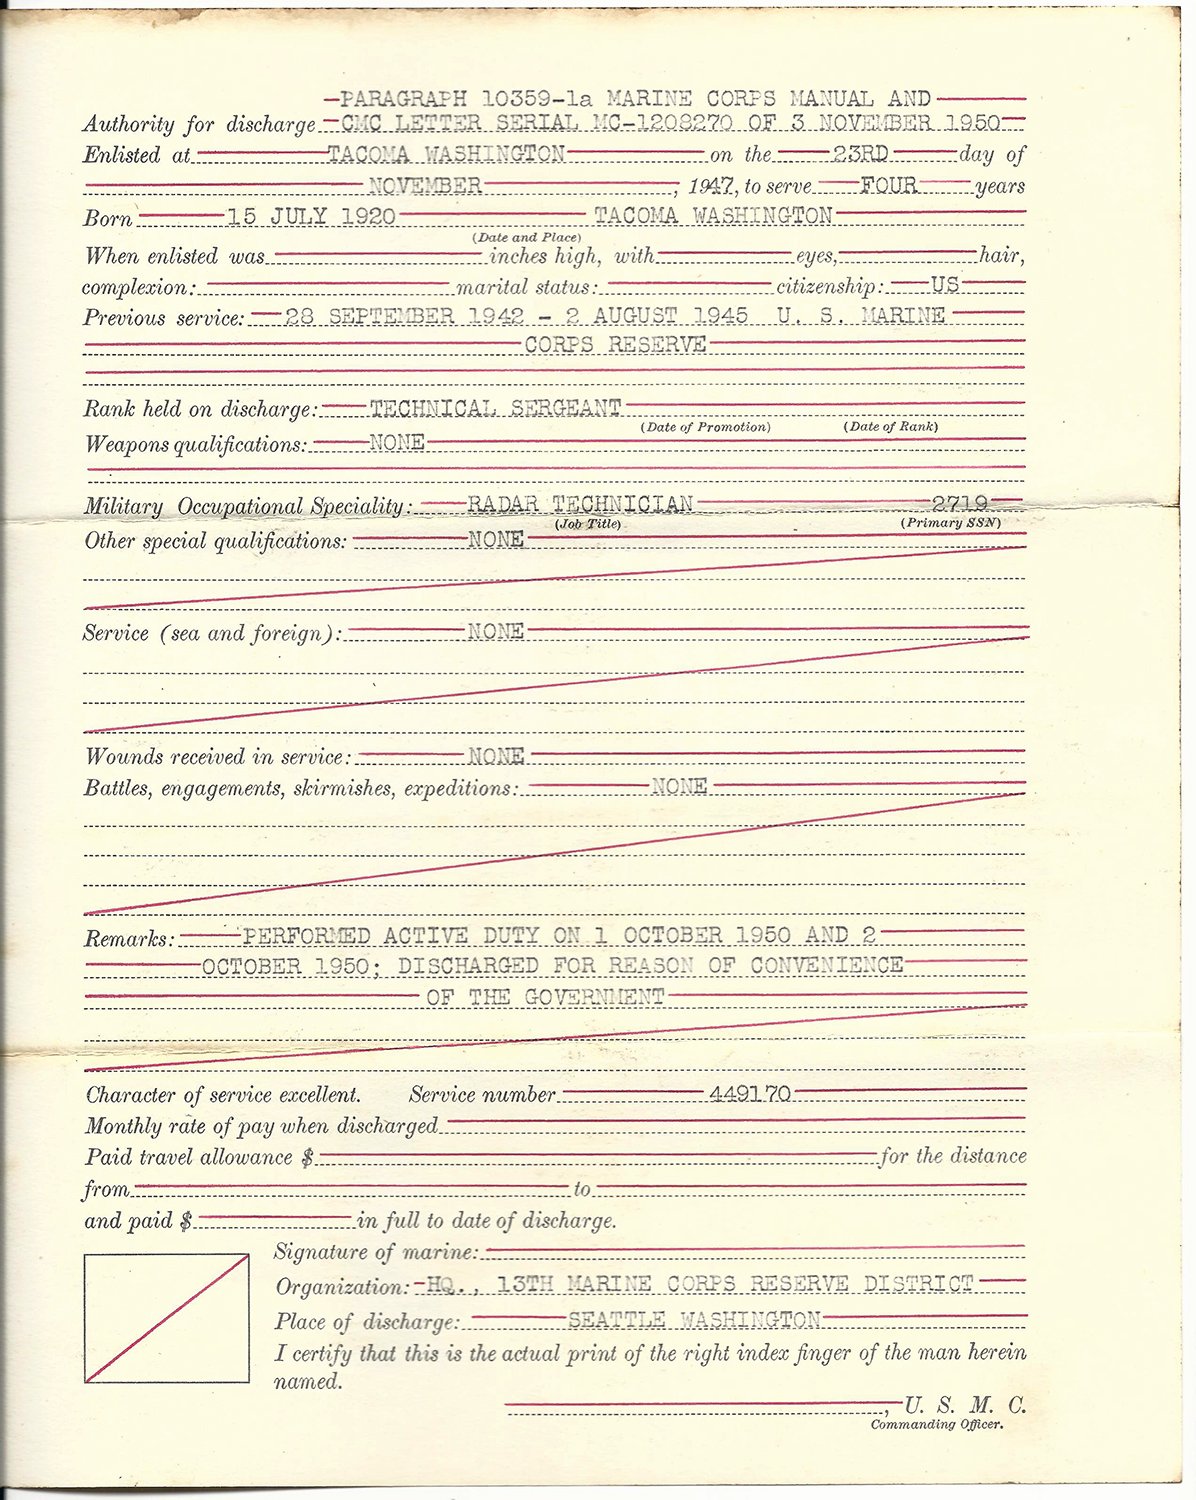 PARAGRAPH 10359-1a MARINE CORPS MANUAL AND
Authority for discharge CMC LETTER SERIAL MC-1208270 OF 3 NOVEMBER 1950
Enlisted at TACOMA WASHINGTON on the 23RD day of
NOVEMBER, 1947, to serve FOUR years
Born 15 JULY 1920 TACOMA WASHINGTON
(Date and Place)
When enlisted was inches high, with eyes, hair,
complexion: marital status: citizenship: US
Previous service: 28 SEPTEMBER 1942 - 2 AUGUST 1945 U. S. MARINE
CORPS RESERVE
Rank held on discharge: TECHNICAL SERGEANT
(Date of Promotion) (Date of Rank)
Weapons qualifications: NONE
Military Occupational Speciality: RADAR TECHNICIAN 2719
(Job Title) (Primary SSN)
Other special qualifications: NONE
Service (sea and foreign): NONE
Wounds received in service: NONE
Battles, engagements, skirmishes, expeditions: NONE
Remarks: PERFORMED ACTIVE DUTY ON 1 OCTOBER 1950 AND 2
OCTOBER 1950; DISCHARGED FOR REASON OF CONVENIENCE
OF THE GOVERNMENT
Character of service excellent. Service number 449170
Monthly rate of pay when discharged
Paid travel allowance $ for the distance
from to
and paid $ in full to date of discharge.
Signature of marine:
Organization: HQ., 13TH MARINE CORPS RESERVE DISTRICT
Place of discharge: SEATTLE WASHINGTON
I certify that this is the actual print of the right index finger of the man herein
named.
, U. S. M. C.
Commanding Officer.